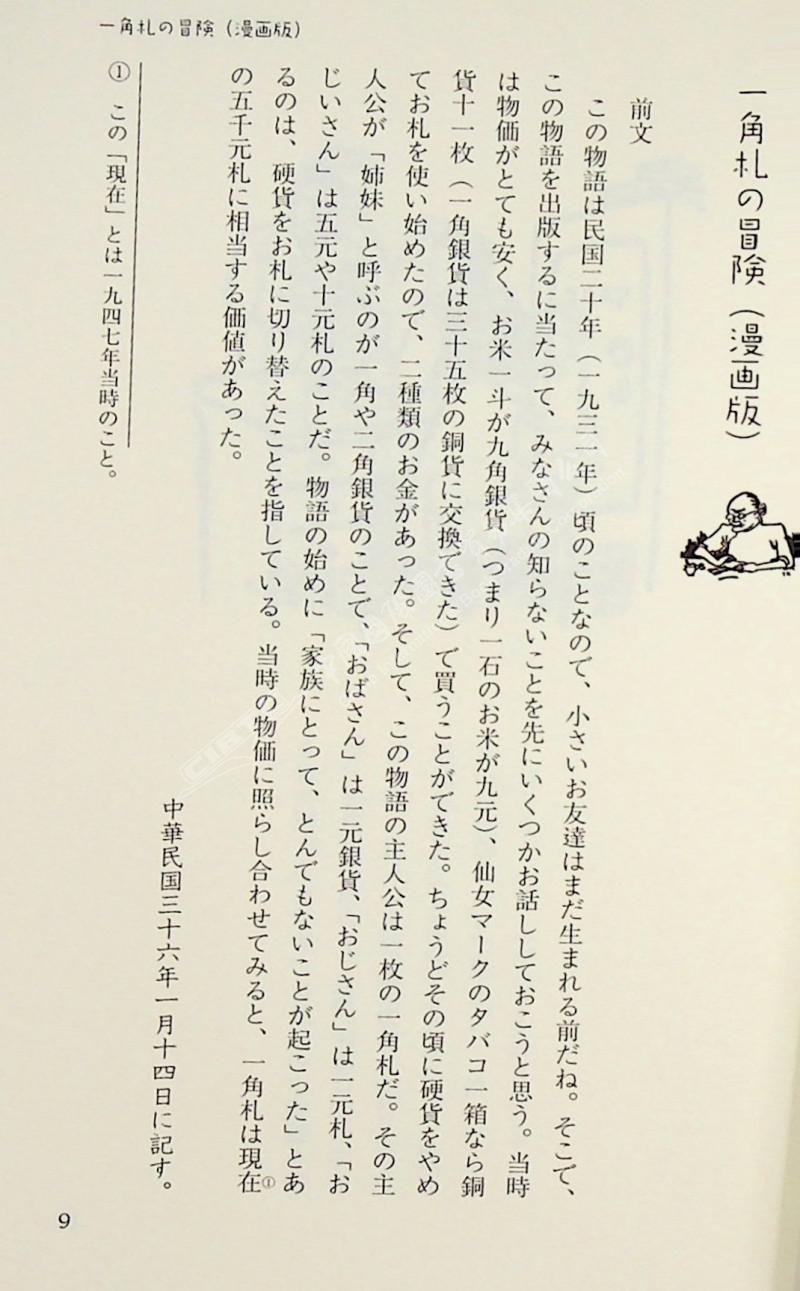 一角札の冒険（漫画版）
一角札の冒険（漫画版）
前文
この物語は民国二十年（一九三一年）頃のことなので、小さいお友達はまだ生まれる前だね。そこで、
この物語を出版するに当たって、みなさんの知らないことを先にいくつかお話ししておこうと思う。当時
は物価がとても安く、お米一斗が九角銀貨（つまり一石のお米が九元）、仙女マークのタバコ一箱なら銅
貨十一枚（一角銀貨は三十五枚の銅貨に交換できた）で買うことができた。ちょうどその頃に硬貨をやめ
てお札を使い始めたので、二種類のお金があった。そして、この物語の主人公は一枚の一角札だ。その主
人公が「姉妹」と呼ぶのが一角や二角銀貨のことで、「おばさん」は一元銀貨、「おじさん」は一元札、「お
じいさん」は五元や十元札のことだ。物語の始めに「家族にとって、とんでもないことが起こった」とあ
るのは、硬貨をお札に切り替えたことを指している。当時の物価に照らし合わせてみると、一角札は現在①
の五千元札に相当する価値があった。
中華民国三十六年一月十四日に記す。
① この「現在」とは一九四七年当時のこと。
9